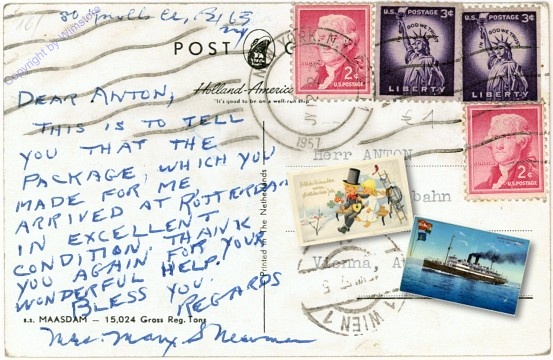 Copyright by Wilnsdorfs
POST
Holland-America
"It's good to be on a well-run ship
DEAR ANTON,
THIS IS TO TELL
YOU THAT THE
PACKAGE, WHICH YOU
MADE FOR ME
ARRIVED AT ROTTERDAM
IN EXCELLENT
CONDITION. THANK
YOU AGAIN FOR YOUR
WONDERFUL HELP.
BLESS YOU.
REGARDS
Mrs. Mary S Newman
s.s. MAASDAM – 15,024 Gross Reg. Tons
Printed in The Netherlands
NEW YORK, N.Y.
1957
U.S. POSTAGE 3¢
IN GOD WE TRUST
LIBERTY
U.S. POSTAGE 3¢
IN GOD WE TRUST
LIBERTY
2¢
U.S. POSTAGE
2¢
U.S. POSTAGE
Herr ANTON
bahn
Vienna, Au
WIEN 1